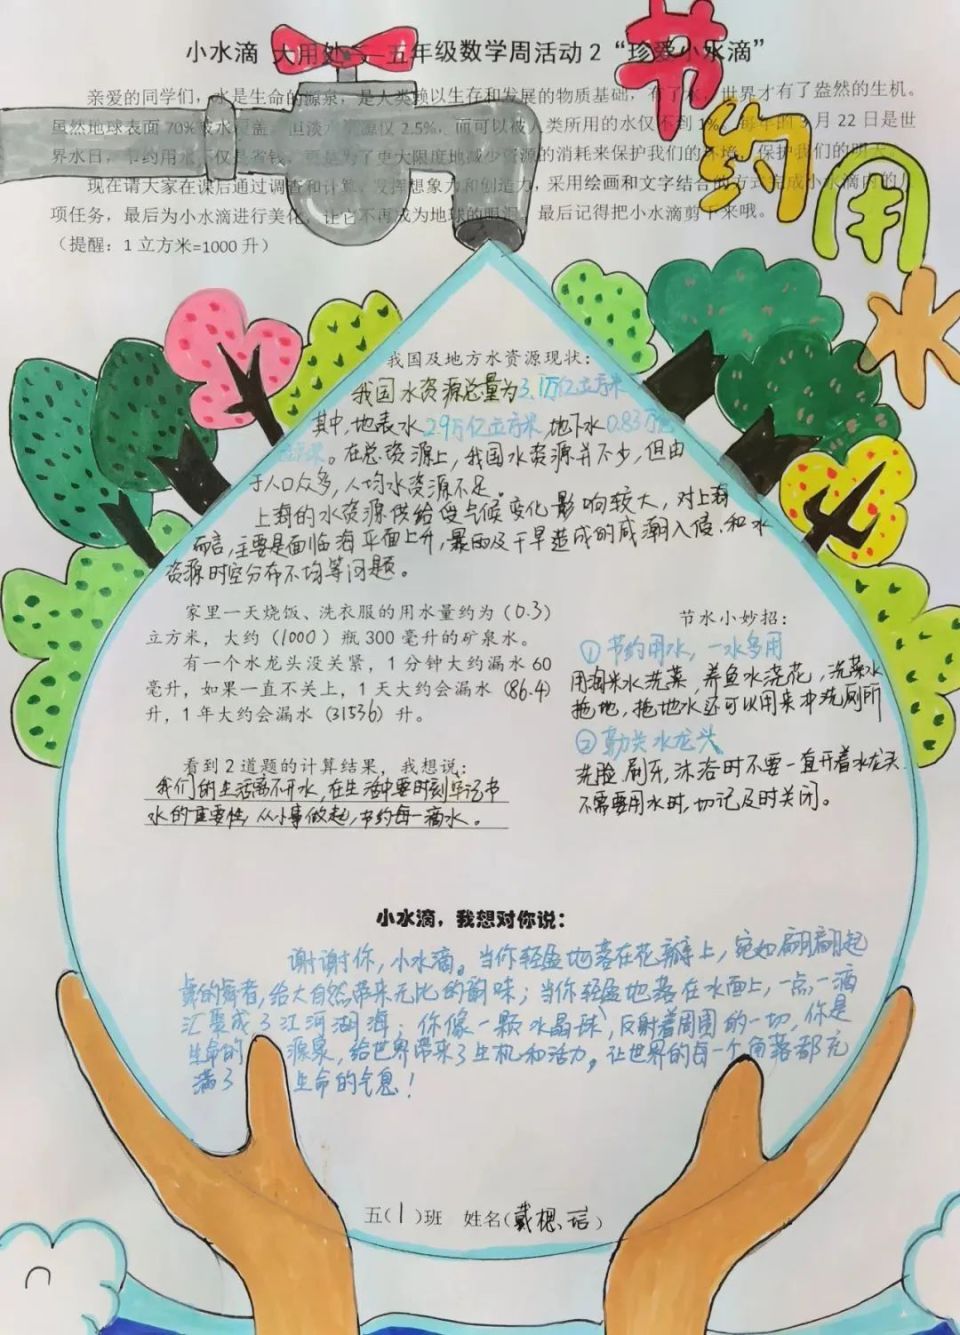 小水滴 大用处——五年级数学周活动2“珍爱小水滴”
亲爱的同学们，水是生命的源泉，是人类赖以生存和发展的物质基础，有了水，世界才有了盎然的生机。
虽然地球表面70%被水覆盖，但淡水资源仅2.5%，而可以被人类所用的水仅不到1%。每年的3月22日是世
界水日，节约用水不仅是省钱，更是为了更大限度地减少资源的消耗来保护我们的环境，保护我们的明天。
现在请大家在课后通过调查和计算，发挥想象力和创造力，采用绘画和文字结合的方式完成小水滴内的几
项任务，最后为小水滴进行美化，让它不再成为地球的眼泪。最后记得把小水滴剪下来哦。
（提醒：1立方米=1000升）
节约用水
我国及地方水资源现状：
我国水资源总量为3.1万亿立方米
其中，地表水2.9万亿立方米，地下水0.83万亿
立方米。在总资源上，我国水资源并不少，但由
于人口众多，人均水资源不足。
上海的水资源供给受气候变化影响较大，对上海
而言，主要是面临海平面上升，暴雨及干旱造成的咸潮入侵、和水
资源时空分布不均等问题。
家里一天烧饭、洗衣服的用水量约为（0.3）
立方米，大约（1000）瓶300毫升的矿泉水。
有一个水龙头没关紧，1分钟大约漏水60
毫升，如果一直不关上，1天大约会漏水（86.4）
升，1年大约会漏水（31536）升。
看到2道题的计算结果，我想说：
我们的生活离不开水，在生活中要时刻牢记节
水的重要性，从小事做起，节约每一滴水。
节水小妙招：
①节约用水，一水多用
用淘米水洗菜，养鱼水浇花，洗菜水
拖地，拖地水还可以用来冲洗厕所
②勤关水龙头
洗脸、刷牙，沐浴时不要一直开着水龙头
不需要用水时，切记及时关闭。
小水滴，我想对你说：
谢谢你，小水滴。当你轻盈地落在花瓣上，宛如翩翩起
舞的舞者，给大自然带来无比的韵味；当你轻盈地落在水面上，一点一滴
汇聚成了江河湖海；你像一颗水晶球，反射着周围的一切，你是
生命的源泉，给世界带来了生机和活力，让世界的每一个角落都充
满了生命的气息！
五（1）班 姓名（戴）